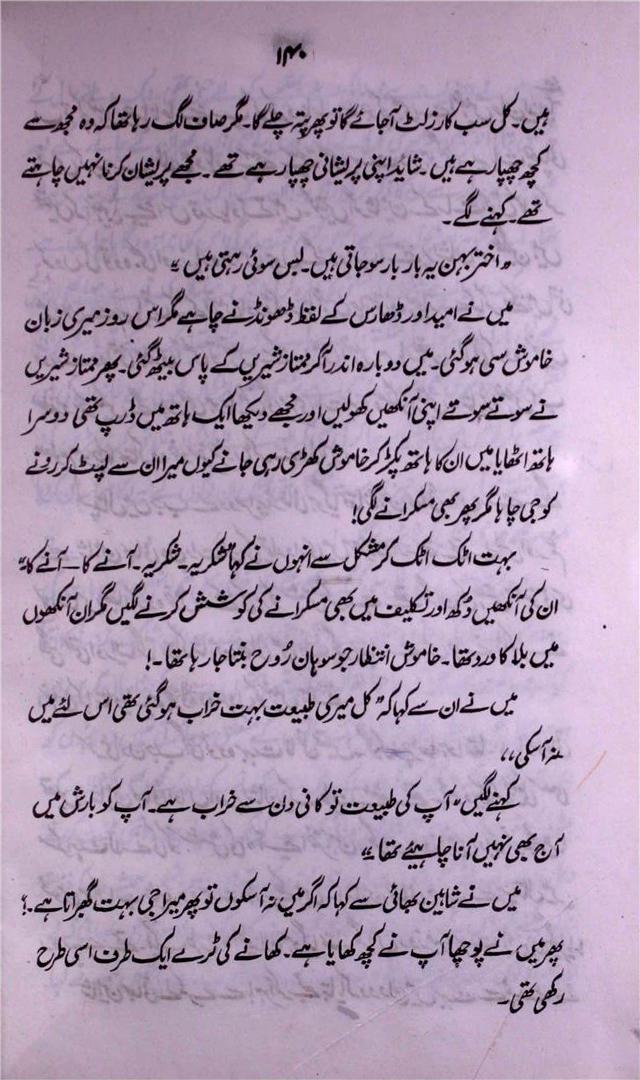 ۱۴۰
ہیں۔ کل سب کا رزلٹ آجائے گا تو پھر پتہ چلے گا۔ مگر صاف لگ رہا تھا کہ وہ مجھ سے
کچھ چھپا رہے ہیں۔ شاید اپنی پریشانی چھپا رہے تھے۔ مجھے پریشان کرنا نہیں چاہتے
تھے۔ کہنے لگے۔
”اختر بہن یہ بار بار سو جاتی ہیں۔ بس سوئی رہتی ہیں“
میں نے امید اور ڈھارس کے لفظ ڈھونڈنے چاہے مگر اس روز میری زبان
خاموش سی ہو گئی۔ میں دوبارہ اندر آکر ممتاز شیریں کے پاس بیٹھ گئی۔ پھر ممتاز شیریں
نے سوتے سوتے اپنی آنکھیں کھولیں اور مجھے دیکھا ایک ہاتھ میں ڈرپ تھی دوسرا
ہاتھ اٹھایا میں ان کا ہاتھ پکڑ کر خاموش کھڑی رہی جانے کیوں میرا ان سے لپٹ کر رونے
کو جی چاہا مگر پھر بھی مسکرانے لگی!
بہت اٹک اٹک کر مشکل سے انہوں نے کہا ”شکریہ۔ شکریہ۔ آنے کا ــ آنے کا“
ان کی آنکھیں دُکھ اور تکلیف میں بھی مسکرانے کی کوشش کرنے لگیں مگر ان آنکھوں
میں بلا کا درد تھا۔ خاموش انتظار جو سوہان رُوح بنتا جا رہا تھا۔!
میں نے ان سے کہا کہ ”کل میری طبیعت بہت خراب ہو گئی تھی اس لئے میں
نہ آسکی“
کہنے لگیں ”آپ کی طبیعت تو کافی دن سے خراب ہے۔ آپ کو بارش میں
آج بھی نہیں آنا چاہیئے تھا“
میں نے شاہین بھائی سے کہا کہ اگر میں نہ آسکوں تو پھر میرا جی بہت گھبراتا ہے۔؟
پھر میں نے پوچھا آپ نے کچھ کھایا ہے۔ کھانے کی ٹرے ایک طرف اسی طرح
رکھی تھی۔